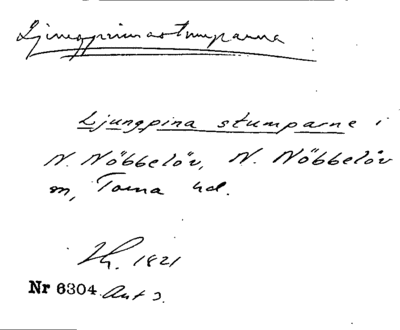 Ljungpinastumparna
Ljungpina stumparne i
N. Nöbbelöv, N. Nöbbelöv
sn, Torna hd.
1821
Nr 6304 Ant 3.